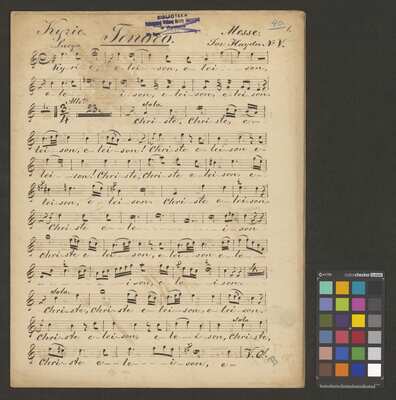 Kyrie Tenore. Messe.
BIBLIOTEKA
Largo Jos. Haydn. N. V.
Ky-ri-e e-lei-son, e-lei-son,
e-le-ison, e-leison, e-leison.
Allo 23. Solo.
Chri-ste, Chri-ste, e-
lei-son, e-leison! Christe e-leison e-
lei-son! Christe, Christe, e-leison e-
leison, e-leison Christe e-lei-son
Christe e-lei-son
Christe e-leison e-leison e-le-
ison, e-le-ison
Solo.
Christe, Christe, e-leison, e-leison.
Solo
Christe e-leison, e-leison, Christe,
Christe e-le-ison, e-
V. S.